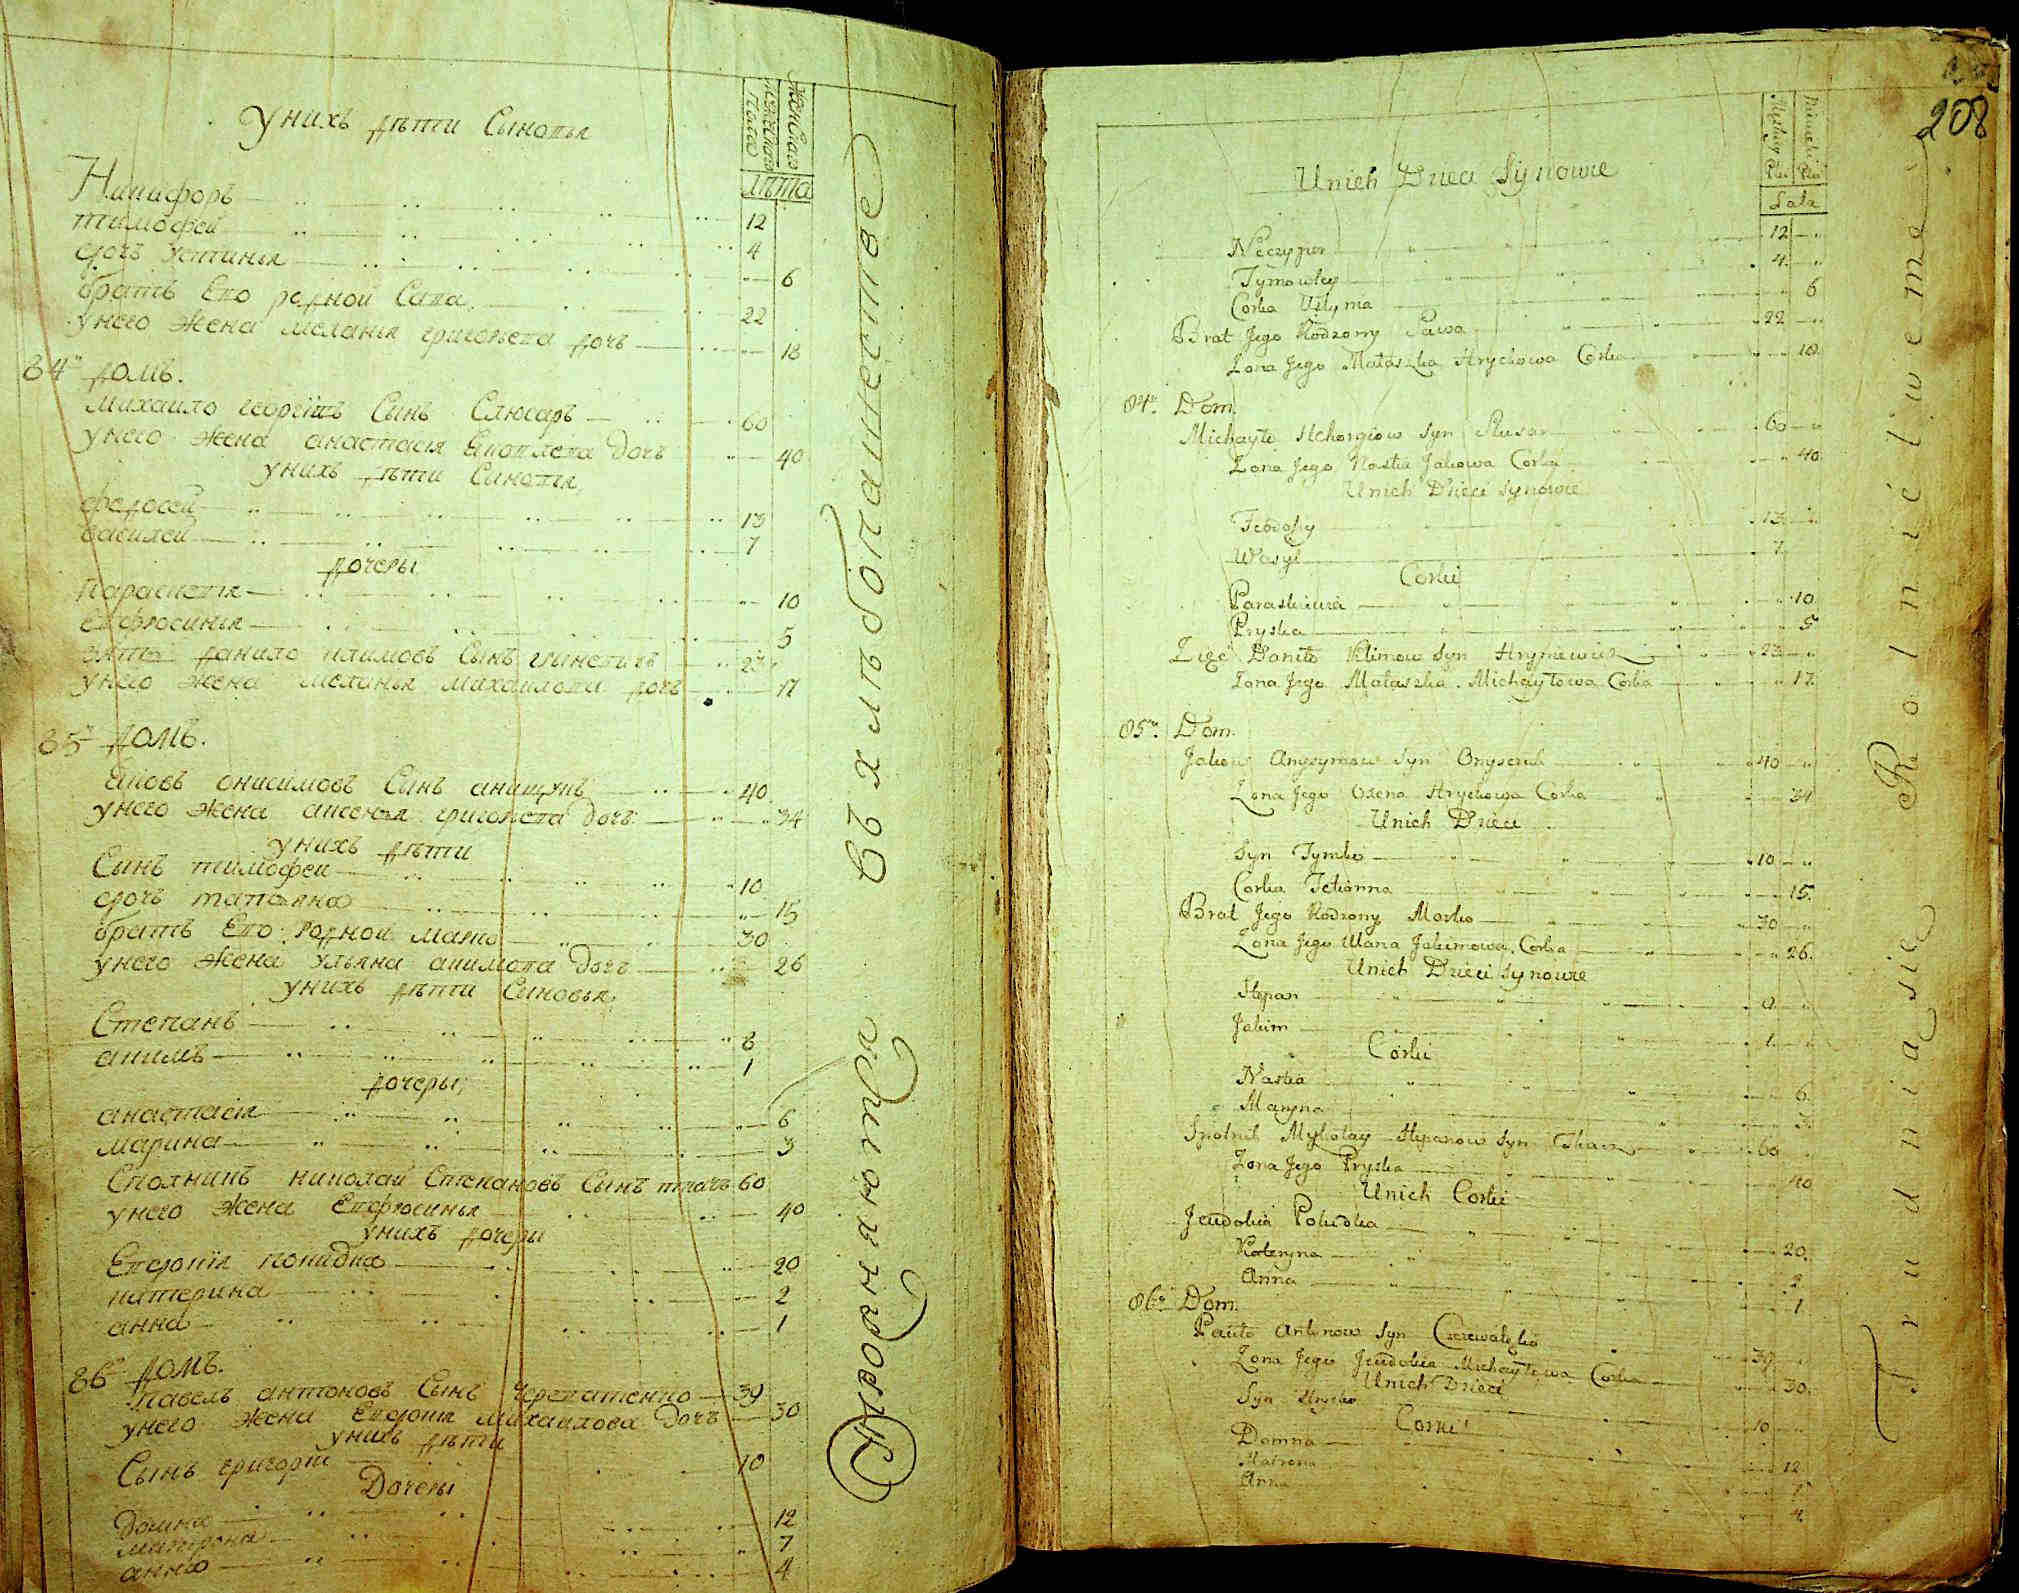 Женская
Мужеского
Пола
Лѣта
Унихъ дѣти Сыновья
Никифоръ 12
тимофей 4
дочь устинья 6
братъ Его родной Сава 22
унего жена меланья григорьева дочь 18
84й домъ.
Михаило георгіевъ Сынъ Слюсаръ 60
унего жена анастасія Яковлева дочь 40
унихъ дѣти Сыновья
федосей 13
василей 7
дочеры
параскевія 10
евфросинья 5
зять данило климовъ Сынъ гриневичъ 23
унего жена меланья михайлова дочь 17
85й домъ.
Яковъ онисимовъ Сынъ анищукъ 40
унего жена аксенья григорьева дочь 34
унихъ дѣти
Сынъ тимофеи 10
дочь татьяна 15
братъ Его родной марко 30
унего жена ульяна акимова дочь 26
унихъ дѣти Сыновья
Степанъ 8
акимъ 1
дочеры
анастасія 6
марина 3
Сполникъ николай Степановъ Сынъ ткачъ 60
унего жена Евфросинья 40
унихъ дочеры
Евдокія покидка 20
катерина 2
анна 1
86й домъ.
павелъ антоновъ Сынъ Череватенко 39
унего жена Евдокія михайлова дочь 30
унихъ дѣти
Сынъ григорій 10
Дочеры
домна 12
матрона 7
анна 4
Упражняются въ хлѣбопашествѣ
208
Męskiey Płci
Łata
Unich Dzieci Synowie
Neczypor 12
Tymowtey 4
Corka Ustyma 6
Brat Jego Rodzony Sawa 22
Zona Jego Małaszka Hryckowa Corka 18
84. Dom.
Michayło Hehorgiow Syn Slusar 60
Zona Jego Nastia Jakowa Corka 40
Unich Dzieci Synowie
Fedosiy 13
Wasyl 7
Corki
Paraskiewia 10
Pryska 5
Zięć Daniło Klimow Syn Hryniewicz 23
Zona Jego Małaszka Michayłowa Corka 17
85. Dom.
Jakow Anysymow Syn Onyszczuk 40
Zona Jego Oxena Hryckowa Corka 34
Unich Dzieci
Syn Tymko 10
Corka Tetianna 15
Brat Jego Rodzony Marko 30
Zona Jego Ulana Jakimowa Corka 26
Unich Dzieci Synowie
Stepan 8
Jakim 1
Corki
Nastia 6
Maryna 3
Spolnik Mykołay Stepanow Syn Tkacz 60
Zona Jego Pryska 40
Unich Corki
Jeudokia Pokidka 20
Kateryna 2
Anna 1
86. Dom.
Pawło Antonow Syn Czerwatenko 39
Zona Jego Jeudokia Michayłowa Corka 30
Unich Dzieci
Syn Hrycko 10
Corki
Domna 12
Matrona 7
Anna 4
Trudnia się Rolnictwem